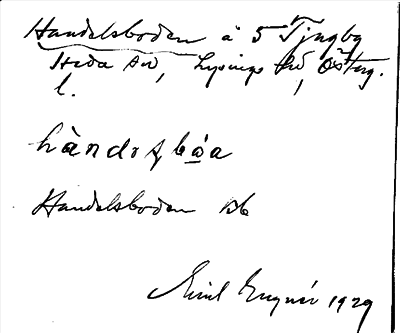 Handelsboden å 5 Tjugby
Heda sn, Lysings hd, Österg.
l.
hàndɷsbɷa
Handelsboden Bb
Emil Enger 1929